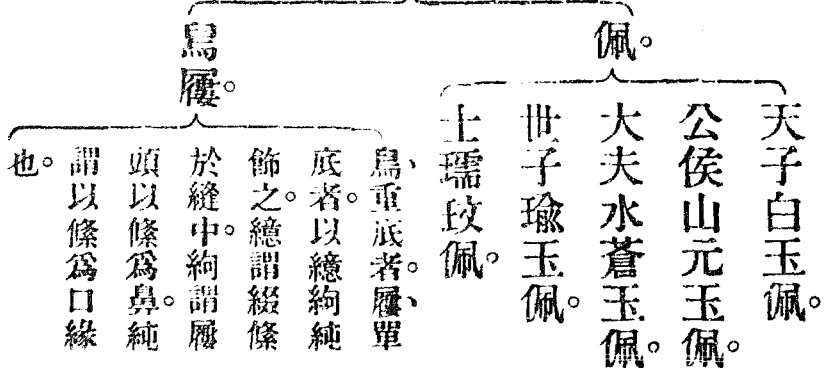 佩。
天子白玉佩。
公侯山元玉佩。
大夫水蒼玉佩。
世子瑜玉佩。
士瓀玟佩。
舃屨。
舃、重底者。屨、單
底者。以繶絇純
飾之。繶謂綴絛
於縫中。絇謂屨
頭以絛爲鼻。純
謂以絛爲口緣
也。